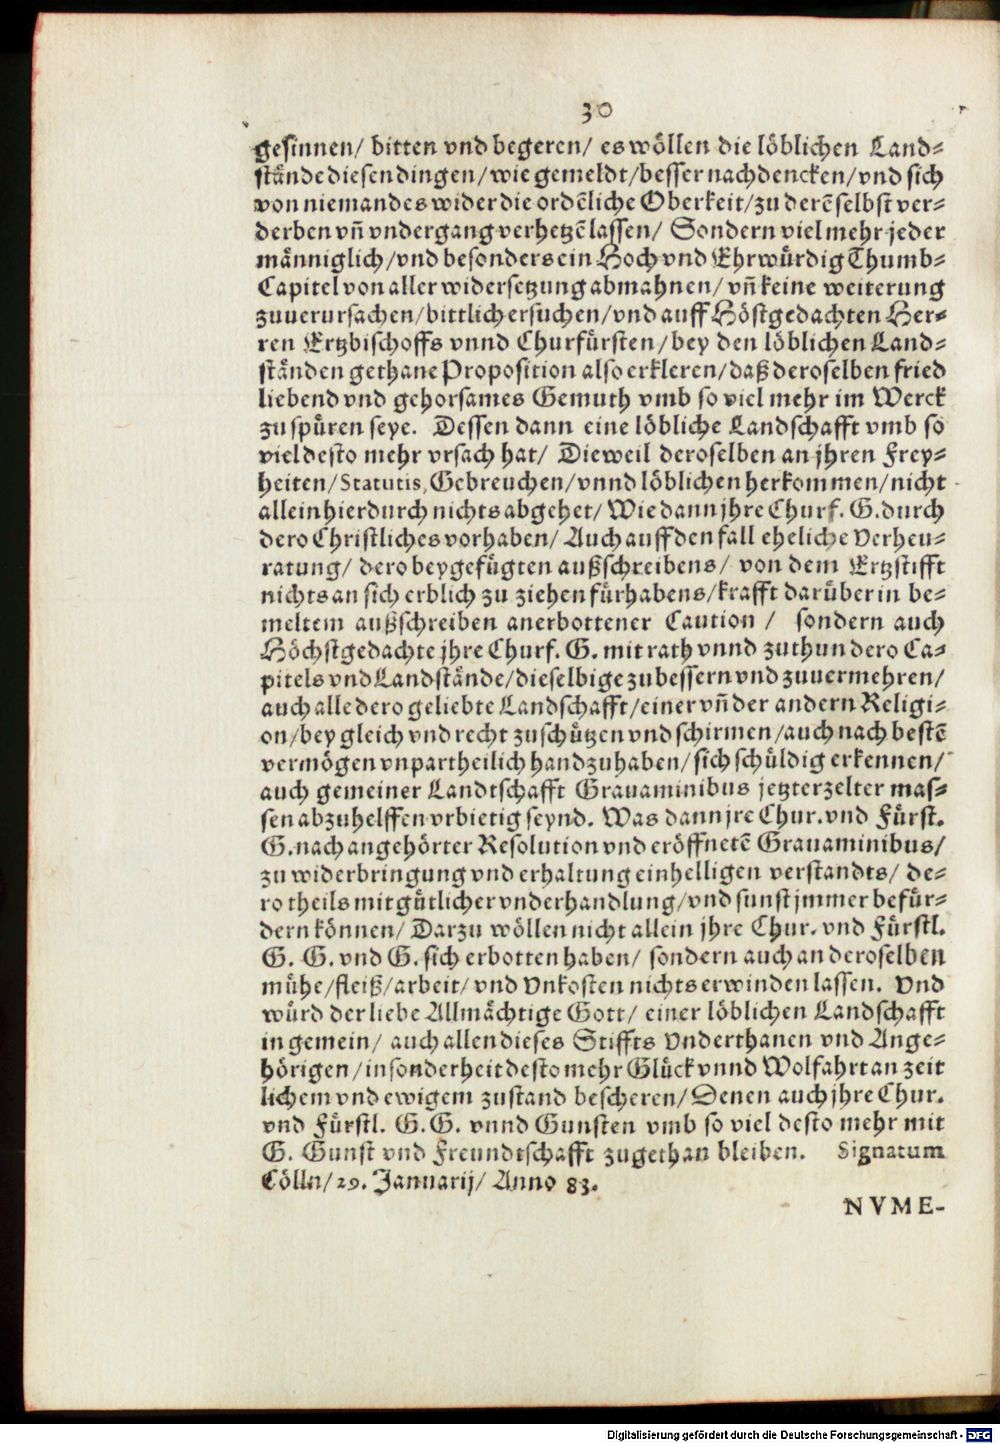 30
gesinnen/ bitten vnd begeren/ es wöllen die löblichen Land-
stände diesen dingen/ wie gemeldt/ besser nachdencken/ vnd sich
von niemandes wider die ordẽliche Oberkeit/ zu derẽ selbst ver-
derben vñ vndergang verhetzẽ lassen/ Sondern viel mehr jeder
männiglich/ vnd besonders ein Hoch vnd Ehrwürdig Thumb-
Capitel von aller widersetzung abmahnen/ vñ keine weiterung
zuuerursachen/ bittlich ersuchen/ vnd auff Höstgedachten Her-
ren Ertzbischoffs vnnd Churfürsten/ bey den löblichen Land-
ständen gethane Proposition also erkleren/ daß deroselben fried
liebend vnd gehorsames Gemuth vmb so viel mehr im Werck
zu spüren seye. Dessen dann eine löbliche Landschafft vmb so
viel desto mehr vrsach hat/ Dieweil deroselben an jhren Frey-
heiten/ Statutis, Gebreuchen/ vnnd löblichen herkommen/ nicht
allein hierdurch nichts abgehet/ Wie dann jhre Churf. G. durch
dero Christliches vorhaben/ Auch auff den fall eheliche Verheu-
ratung/ dero beygefügten außschreibens/ von dem Ertzstifft
nichts an sich erblich zu ziehen fürhabens/ krafft darüber in be-
meltem außschreiben anerbottener Caution / sondern auch
Höchstgedachte jhre Churf. G. mit rath vnnd zuthun dero Ca-
pitels vnd Landstände/ dieselbige zubessern vnd zuuermehren/
auch alle dero geliebte Landschafft/ einer vñ der andern Religi-
on/ bey gleich vnd recht zuschützen vnd schirmen/ auch nach bestẽ
vermögen vnpartheilich handzuhaben/ sich schüldig erkennen/
auch gemeiner Landtschafft Grauaminibus jetzterzelter mas-
sen abzuhelffen vrbietig seynd. Was dann jre Chur. vnd Fürst.
G. nach angehörter Resolution vnd eröffnetẽ Grauaminibus/
zu widerbringung vnd erhaltung einhelligen verstandts/ de-
ro theils mit gütlicher vnderhandlung/ vnd sunst jmmer befür-
dern können/ Darzu wöllen nicht allein jhre Chur. vnd Fürstl.
G. G. vnd G. sich erbotten haben/ sondern auch an deroselben
mühe/ fleiß/ arbeit/ vnd Vnkosten nichts erwinden lassen. Vnd
würd der liebe Allmächtige Gott/ einer löblichen Landschafft
in gemein/ auch allen dieses Stiffts Vnderthanen vnd Ange-
hörigen/ insonderheit desto mehr Glück vnnd Wolfahrt an zeit
lichem vnd ewigem zustand bescheren/ Denen auch jhre Chur.
vnd Fürstl. G. G. vnnd Gunsten vmb so viel desto mehr mit
G. Gunst vnd Freundtschafft zugethan bleiben. Signatum
Cölln/ 29. Januarij/ Anno 83.
NVME-
Digitalisierung gefördert durch die Deutsche Forschungsgemeinschaft - DFG